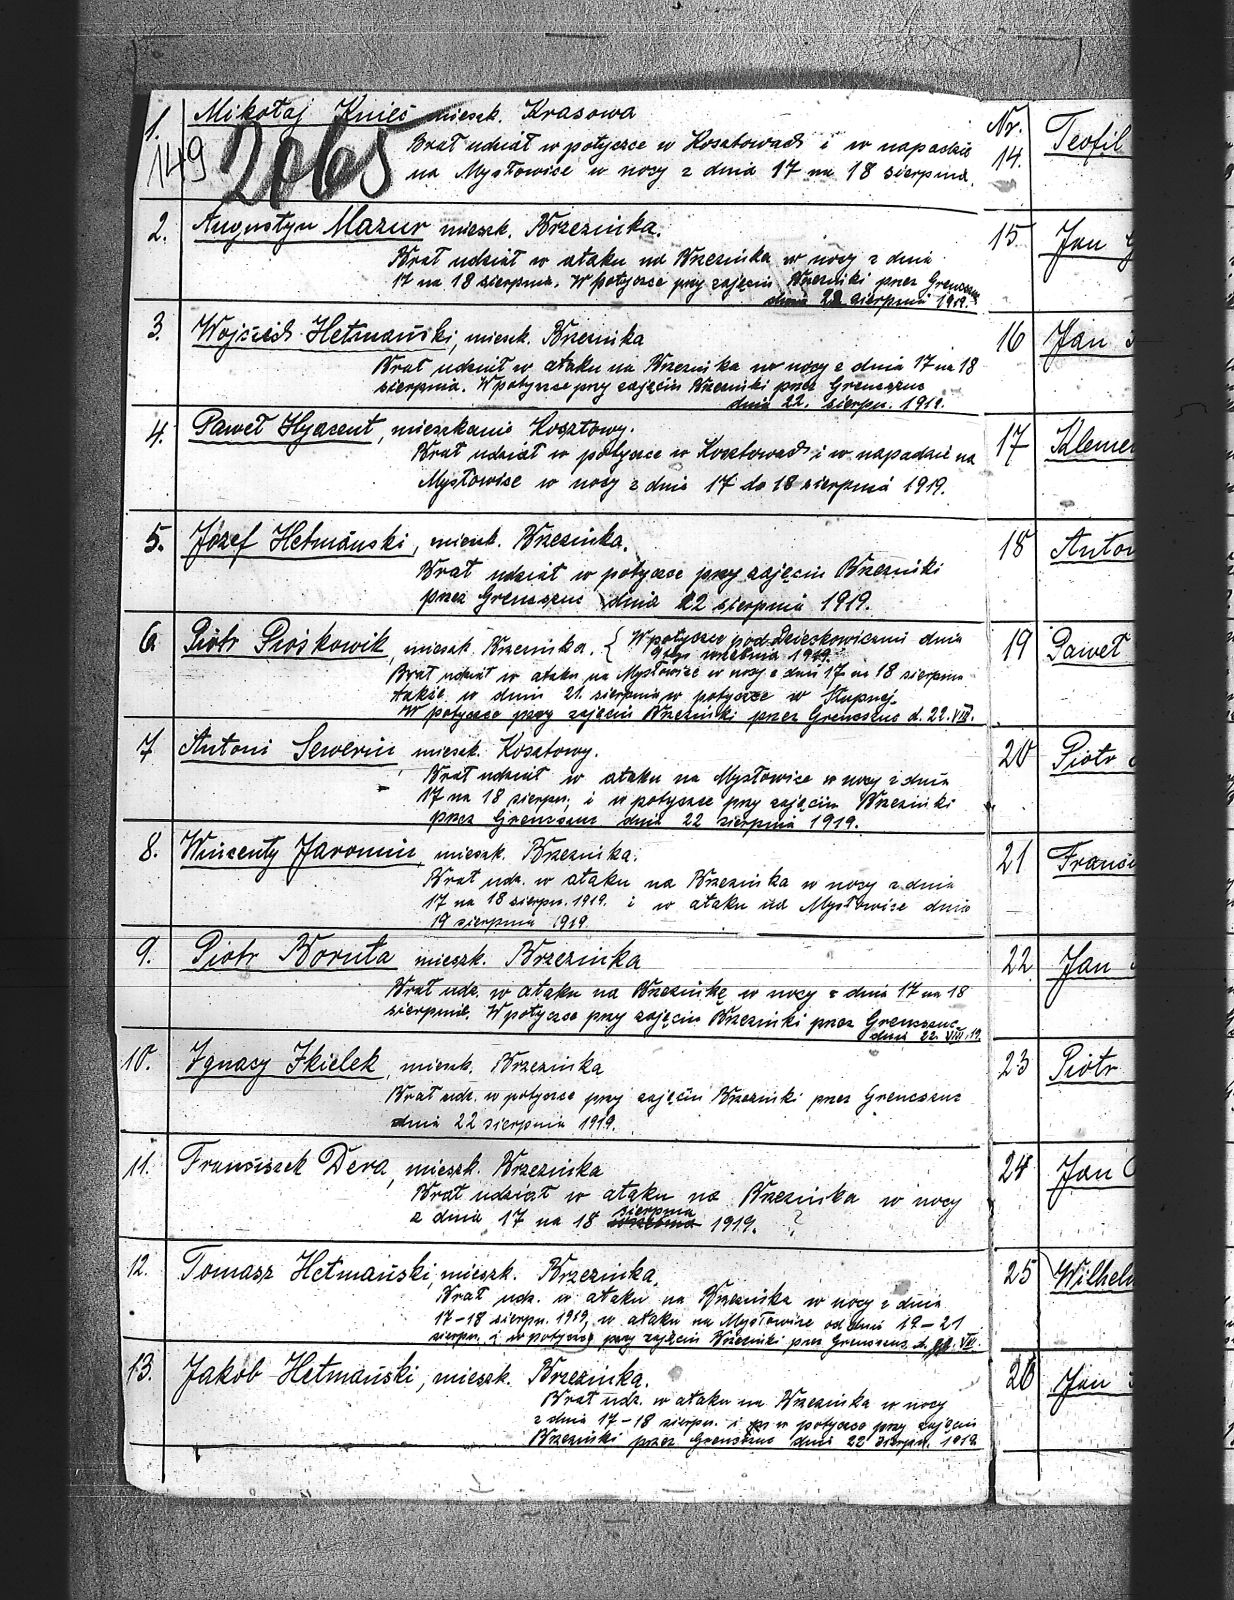 1. Mikołaj Knieć mieszk. Krasowa
149 2065
Brał udział w potyczce w Kosztowach i w napadzie
na Mysłowice w nocy z dnia 17 na 18 sierpnia.
2. Augustyn Mazur mieszk. Brzezinka.
Brał udział w ataku na Brzezinka w nocy z dnia
17 na 18 sierpnia. W potyczce przy zajęciu Brzezinki przez Grenszuc
dnia 22 sierpnia 1919.
3. Wojciech Hetmański, mieszk. Brzezinka
Brał udział w ataku na Brzezinka w nocy z dnia 17 na 18
sierpnia. W potyczce przy zajęciu Brzezinki przez Grenszuc
dnia 22. sierpn. 1919.
4. Paweł Hyacent, mieszkanie Kosztowy.
Brał udział w potyczce w Kosztowach i w napadzie na
Mysłowice w nocy z dnia 17 do 18 sierpnia 1919.
5. Józef Hetmański, mieszk. Brzezinka.
Brał udział w potyczce przy zajęciu Brzezinki
przez Grenszuc dnia 22 sierpnia 1919.
6. Piotr Proskowik, mieszk. Brzezinka. { W potyczce pod Dzieckowicami dnia
września 1919.
Brał udział w ataku na Mysłowice w nocy z dnia 17 na 18 sierpnia
także w dniu 21. sierpnia w potyczce w Słupnej.
W potyczce przy zajęciu Brzezinki przez Grenszuc d. 22. VIII.
7 Antoni Seweriu mieszk. Kosztowy.
Brał udział w ataku na Mysłowice w nocy z dnia
17 na 18 sierpn. i w potyczce przy zajęciu Brzezinki
przez Grenszuc dnia 22 sierpnia 1919.
8. Wincenty Jaromin, mieszk. Brzezinka.
Brał udz. w ataku na Brzezinka w nocy z dnia
17 na 18 sierpn. 1919. i w ataku na Mysłowice dnia
19 sierpnia 1919.
9. Piotr Boruta mieszk. Brzezinka
Brał udz. w ataku na Brzezinkę w nocy z dnia 17 na 18
sierpnia. W potyczce przy zajęciu Brzezinki przez Grenszuc
dnia 22. VIII. 19.
10. Ignacy Ikielek, mieszk. Brzezinka
Brał udz. w potyczce przy zajęciu Brzezinki przez Grenszuc
dnia 22 sierpnia 1919.
11. Franciszek Dera, mieszk. Brzezinka
Brał udział w ataku na Brzezinka w nocy
sierpnia
z dnia 17 na 18 września 1919. ?
12. Tomasz Hetmański, mieszk. Brzezinka.
Brał udz. w ataku na Brzezinka w nocy z dnia
17-18 sierpn. 1919, w ataku na Mysłowice od dnia 19-21
sierpn. i w potyczce przy zajęciu Brzezinki przez Grenszuc d. 22. VIII.
13. Jakób Hetmański, mieszk. Brzezinka.
Brał udz. w ataku na Brzezinka w nocy
z dnia 17-18 sierpn. i w potyczce przy zajęciu
Brzezinki przez Grenszuc dnia 22 sierpn. 1919
Nr.
14. Teofil
15 Jan
16 Jan
17 Klemen
18 Anton
19 Paweł
20 Piotr
21 Franci
22 Jan
23 Piotr
24 Jan
25 Wilhelm
26 Jan